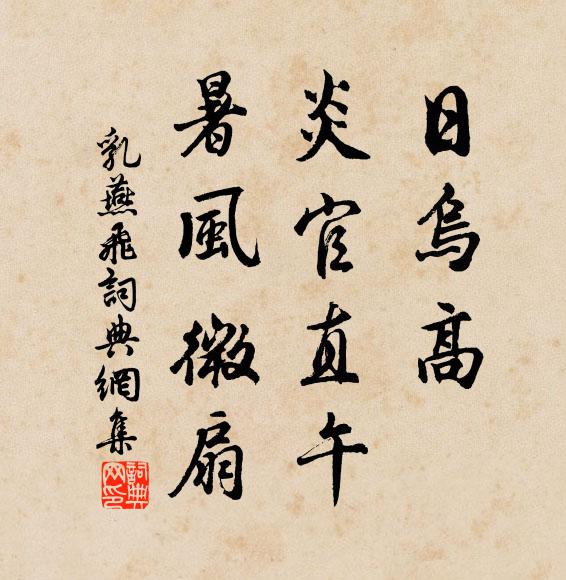 日烏高
炎官直午
暑風微扇
乳燕飛詞典網集
詞典
网印